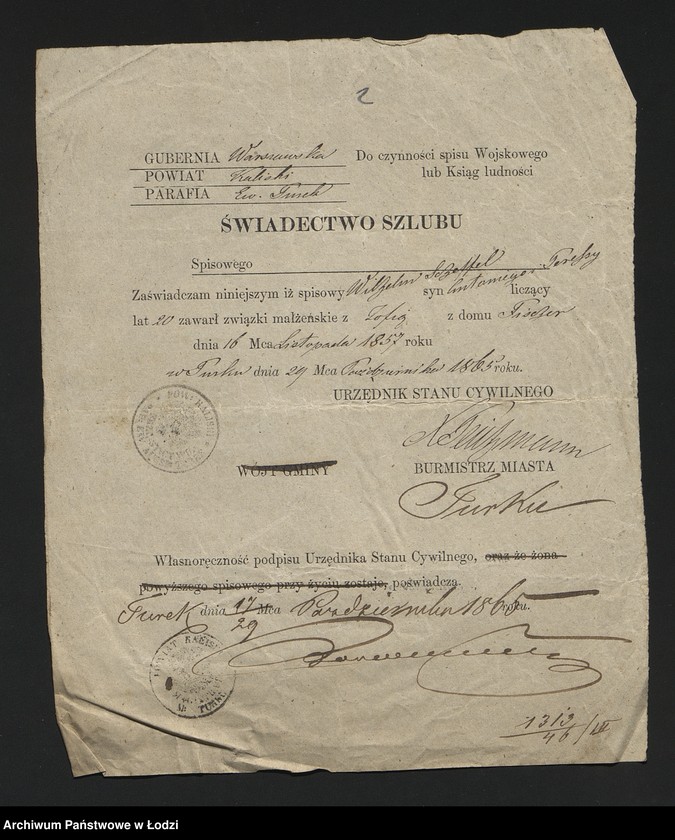 2
GUBERNIA Warszawska
POWIAT Kaliski
PARAFIA Ew. Turek
Do czynności spisu Wojskowego
lub Ksiąg ludności
ŚWIADECTWO SZLUBU
Spisowego
Zaświadczam niniejszym iż spisowy Wilhelm syn Antoniego i Teresy liczący
lat 20 zawarł związki małżeńskie z Zofią z domu Fischer
dnia 16 Mca Listopada 1857 roku
w Turku dnia 29 Mca Października 1865 roku.
URZĘDNIK STANU CYWILNEGO
WÓJT GMINY
BURMISTRZ MIASTA
Turku
Własnoręczność podpisu Urzędnika Stanu Cywilnego, oraz że żona
powyższego spisowego przy życiu zostaje, poświadcza.
Turek dnia 17/29 Mca Października 1865 roku.
1313/46/
Archiwum Państwowe w Łodzi